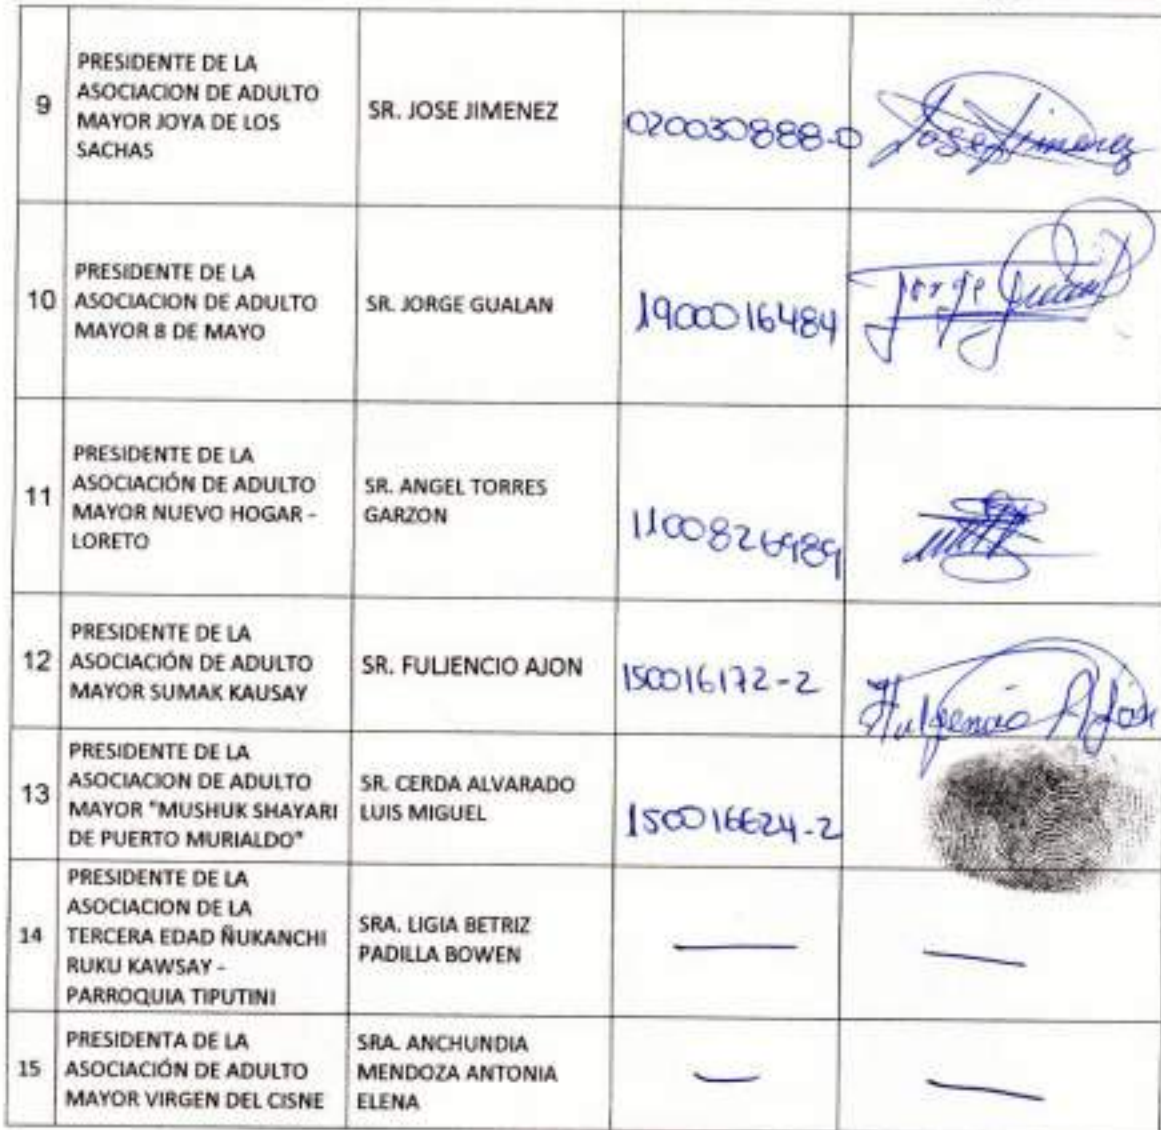 9
PRESIDENTE DE LA
ASOCIACION DE ADULTO
MAYOR JOYA DE LOS
SACHAS
SR. JOSE JIMENEZ
020030888-0
Jose Jimenez
10
PRESIDENTE DE LA
ASOCIACION DE ADULTO
MAYOR 8 DE MAYO
SR. JORGE GUALAN
1900016484
Jorge
11
PRESIDENTE DE LA
ASOCIACIÓN DE ADULTO
MAYOR NUEVO HOGAR -
LORETO
SR. ANGEL TORRES
GARZON
12
PRESIDENTE DE LA
ASOCIACIÓN DE ADULTO
MAYOR SUMAK KAUSAY
SR. FULJENCIO AJON
150016172-2
Fulgencio Ajon
13
PRESIDENTE DE LA
ASOCIACION DE ADULTO
MAYOR "MUSHUK SHAYARI
DE PUERTO MURIALDO"
SR. CERDA ALVARADO
LUIS MIGUEL
150016624-2
14
PRESIDENTE DE LA
ASOCIACION DE LA
TERCERA EDAD ÑUKANCHI
RUKU KAWSAY -
PARROQUIA TIPUTINI
SRA. LIGIA BETRIZ
PADILLA BOWEN
15
PRESIDENTA DE LA
ASOCIACIÓN DE ADULTO
MAYOR VIRGEN DEL CISNE
SRA. ANCHUNDIA
MENDOZA ANTONIA
ELENA